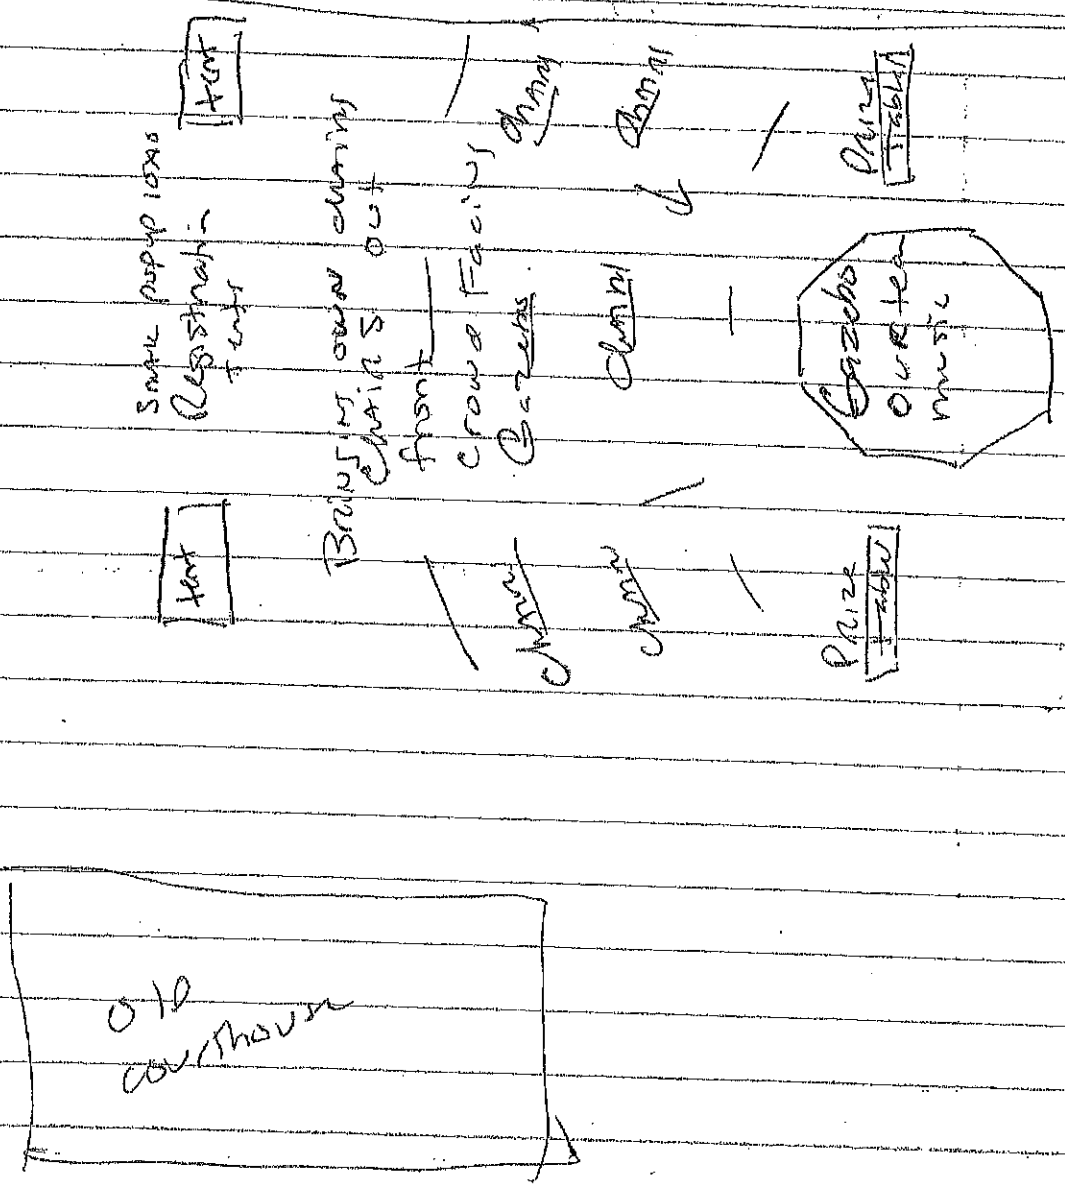 tent
Small popup 10x10
Registration
Tents
tent
Bringing own chairs
Chairs out
front
Crowd Facing
Gazebo.
Chairs
Chairs
Chairs
Chairs
Chairs
Prize
Table
Gazebo
our tea
music
Prize
Table
Old
courthouse